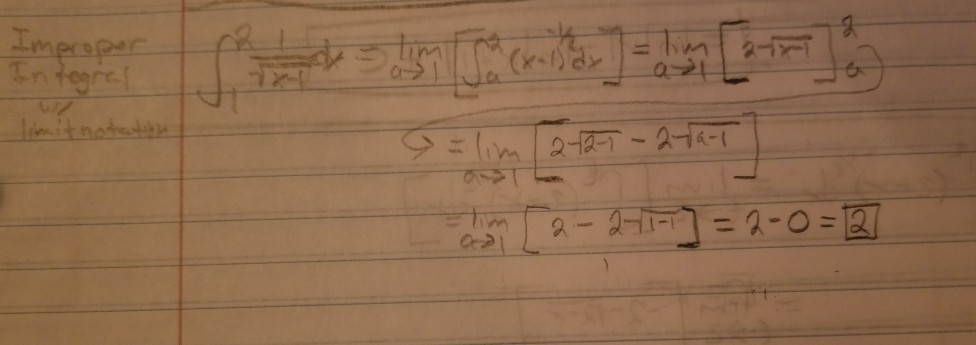 Improper
Integral
w/
limit notation
∫₁² 1/√(x-1) dx = lim a→1 [∫ₐ² (x-1)^(-1/2) dx] = lim a→1 [2√(x-1)]ₐ²
↳ = lim a→1 [2√(2-1) - 2√(a-1)]
= lim a→1 [2 - 2√(1-1)] = 2-0 = 2